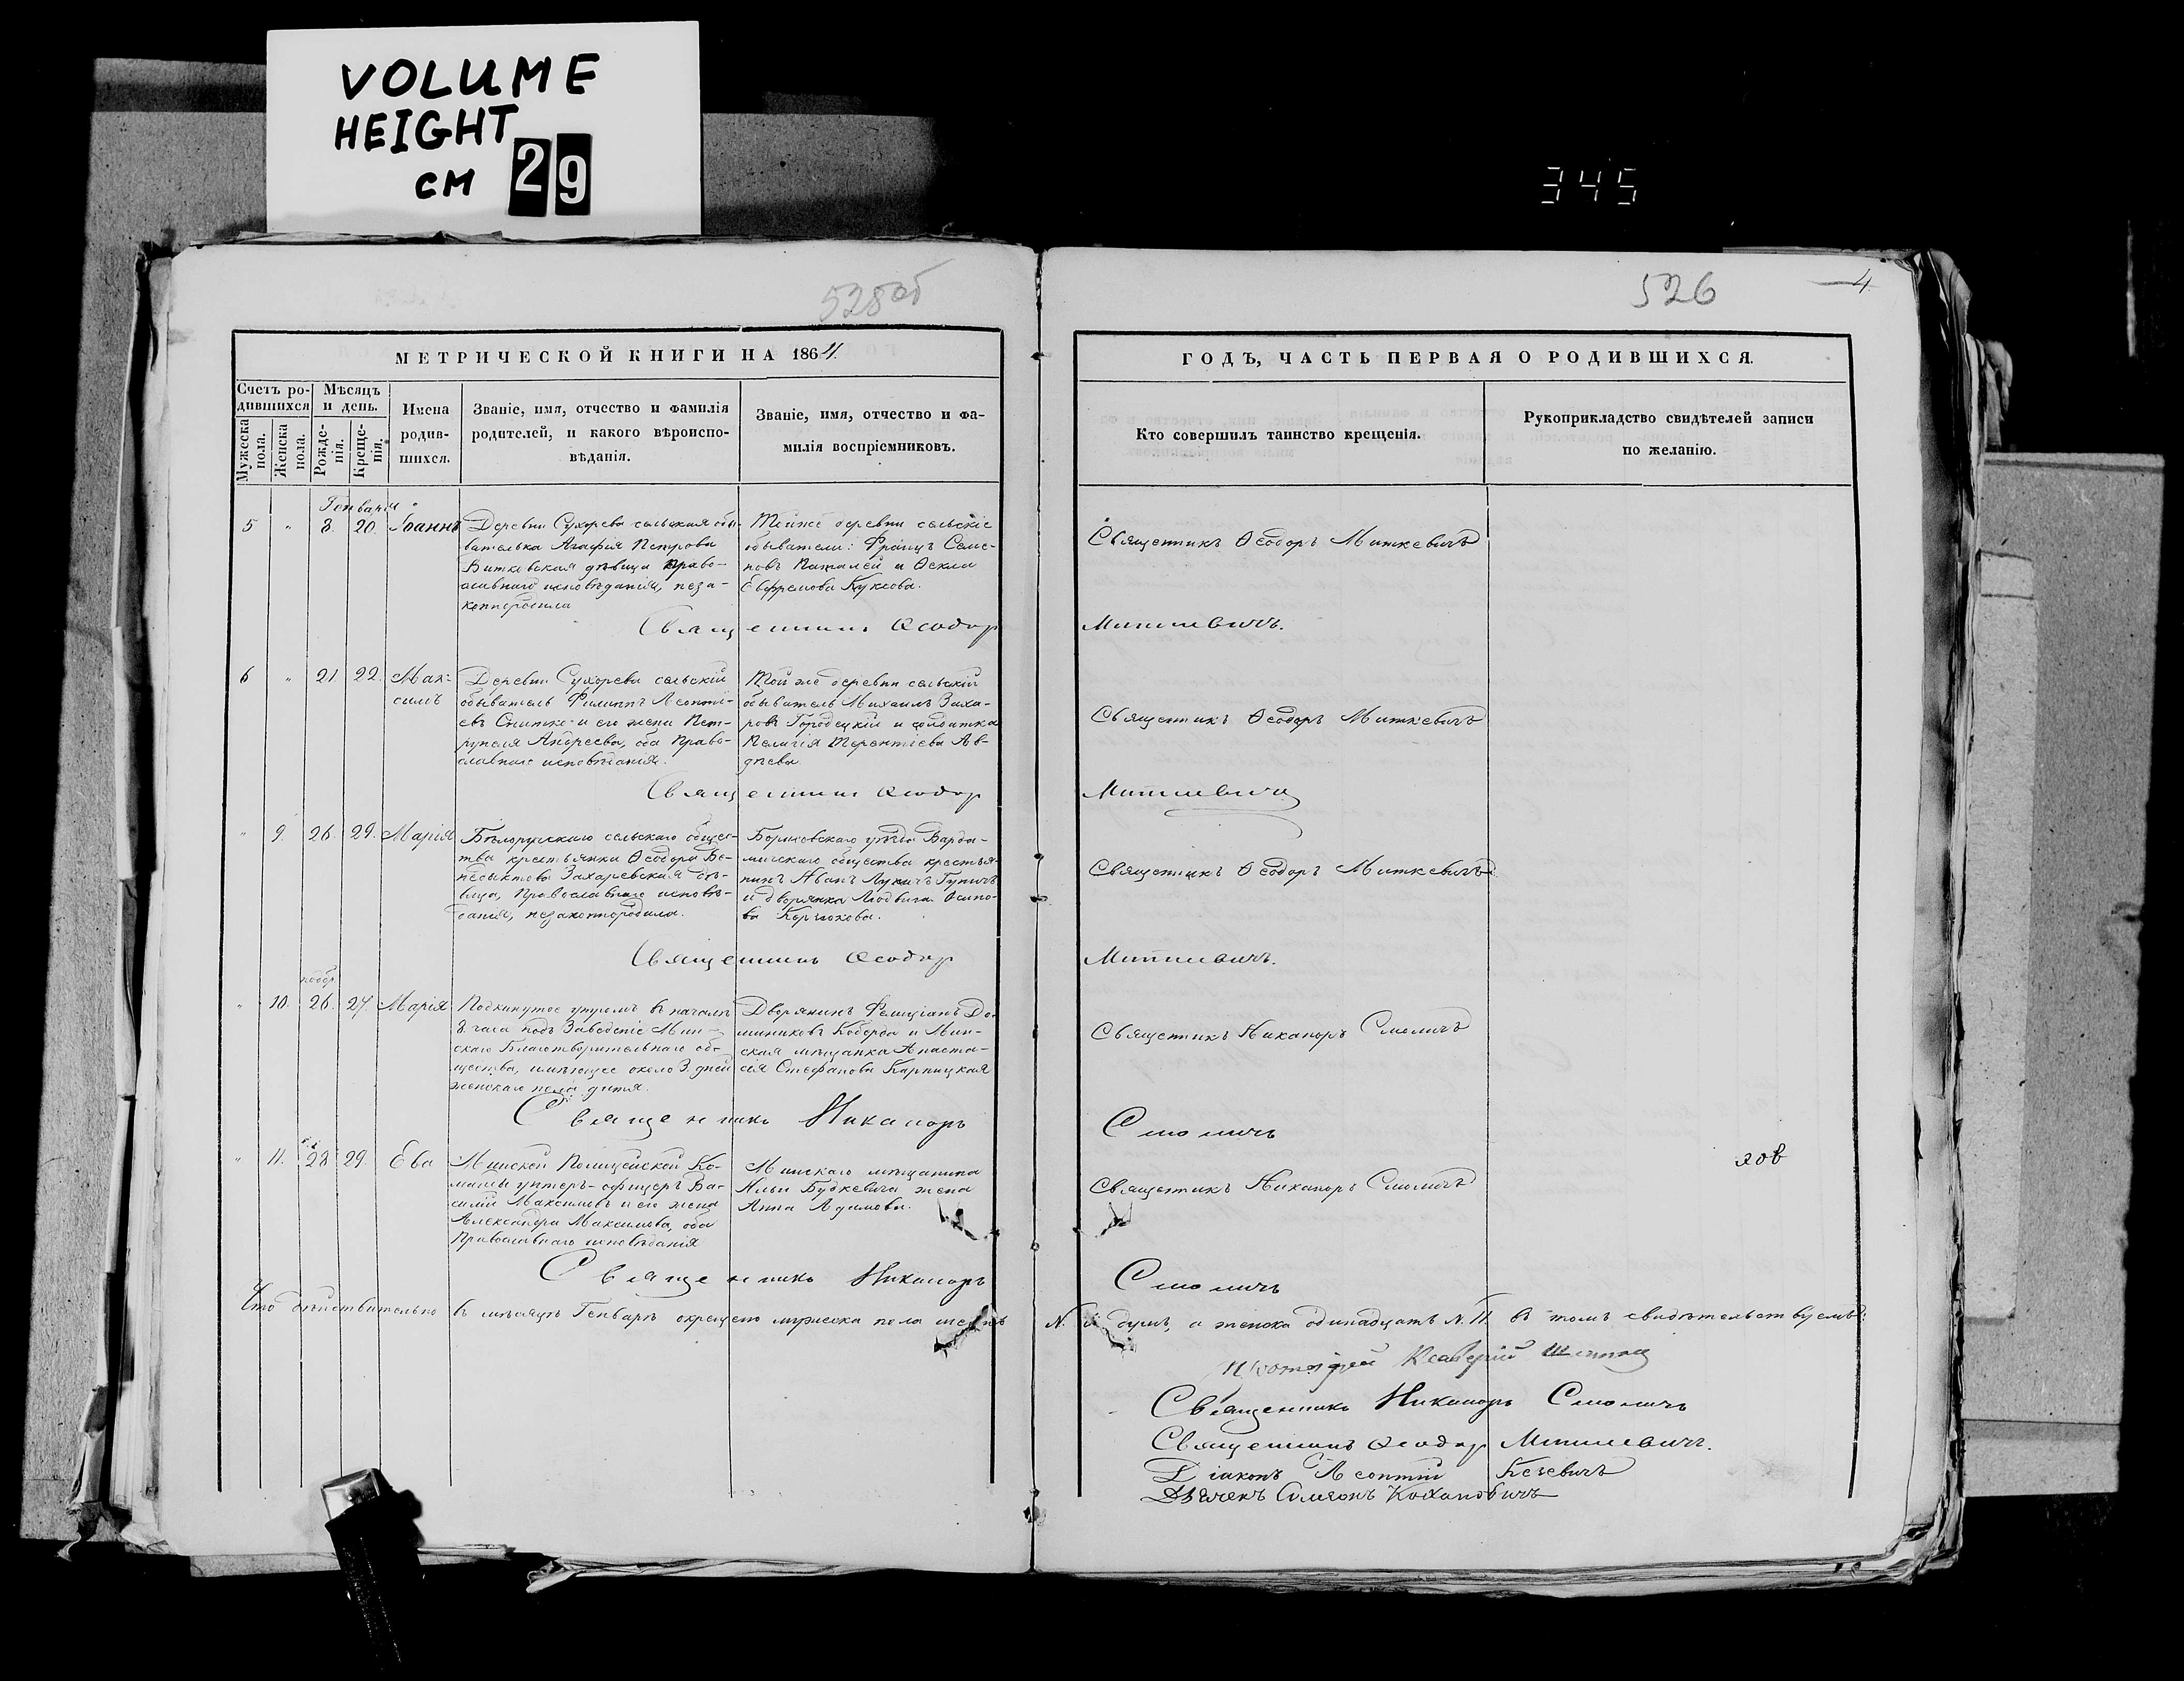 VOLUME
HEIGHT
CM 29
345
528об
526
4
МЕТРИЧЕСКОЙ КНИГИ НА 1864
ГОДЪ, ЧАСТЬ ПЕРВАЯ О РОДИВШИХСЯ.
Счетъ ро-
дившихся
Мужеска
пола.
Женска
пола.
Мѣсяцъ
и день.
Рожде-
нія.
Креще-
нія.
Имена
родив-
шихся.
Званіе, имя, отчество и фамилія
родителей, и какого вѣроиспо-
вѣданія.
Званіе, имя, отчество и фа-
милія воспріемниковъ.
Кто совершилъ таинство крещенія.
Рукоприкладство свидѣтелей записи
по желанію.
Генваря
5 " 8. 20. Іоаннъ
Деревни Сухорева сельская обы-
вателька Агафія Петрова
Витковская дѣвица право-
славнаго исповѣданія, неза-
коннородила
Тойже деревни сельскіе
обыватели: Францъ Семе-
новъ и Ѳекла
Евфремова Куксова.
Священникъ Ѳеодоръ Миткевичъ
Священникъ Ѳеодор Миткевичъ.
6 " 21 22. Мак-
симъ
Деревни Сухорева сельскій
обыватель Филиппъ Леонтi-
евъ Снитко и его жена Пет-
рунеля Андреева, оба право-
славнаго исповѣданія.
Той же деревни сельскій
обыватель Михаилъ Заха-
ровъ Городецкій и солдатка
Пелагія Терентіева Ав-
дѣева.
Священникъ Ѳеодоръ Миткевичъ
Священникъ Ѳеодор Миткевичъ
" 9. 26. 29. Марія
Бѣлоручскаго сельскаго общес-
тва крестьянка Ѳеодора Бе-
недиктова Захаревская дѣ-
вица, Православнаго исповѣ-
данія, незаконнородила.
Борисовскаго уѣзда
общества крестья-
нинъ Иванъ Лукичъ
и дворянка Людвига Осипо-
ва
Священникъ Ѳеодоръ Миткевичъ
Священникъ Ѳеодор Миткевичъ.
" 10. 26. 27. Марія
Подкинутое утромъ въ началѣ
8. часа подъ Заведеніе Мин-
скаго Благотворительнаго об-
щества, имѣющее около 3. дней
женскаго пола дитя.
Дворянинъ Фелиціанъ До-
миниковъ Коборда и Мин-
ская мѣщанка Анаста-
сія Стефанова Карпицкая
Священникъ Никаноръ Смоличъ
Священникъ Никаноръ Смоличъ
" 11. 28 29. Ева
Минской Полицейской Ко-
манды унтеръ-офицеръ Ва-
силій Максимовъ и его жена
Александра Максимова, оба
Православнаго исповѣданія
Минскаго мѣщанина
Ильи Будкевича жена
Анна Адамова.
Священникъ Никаноръ Смоличъ
Священникъ Никаноръ Смоличъ
Что дѣйствительно въ мѣсяцѣ Генварѣ окрещено мужеска пола шесть N. 6 душъ, а женска одинадцать N. 11. въ томъ свидѣтельствуемъ:
Священникъ Никаноръ Смоличъ
Священникъ Ѳеодор Миткевичъ.
Діаконъ Леонтій
Дьячекъ Симеонъ Кохановичъ